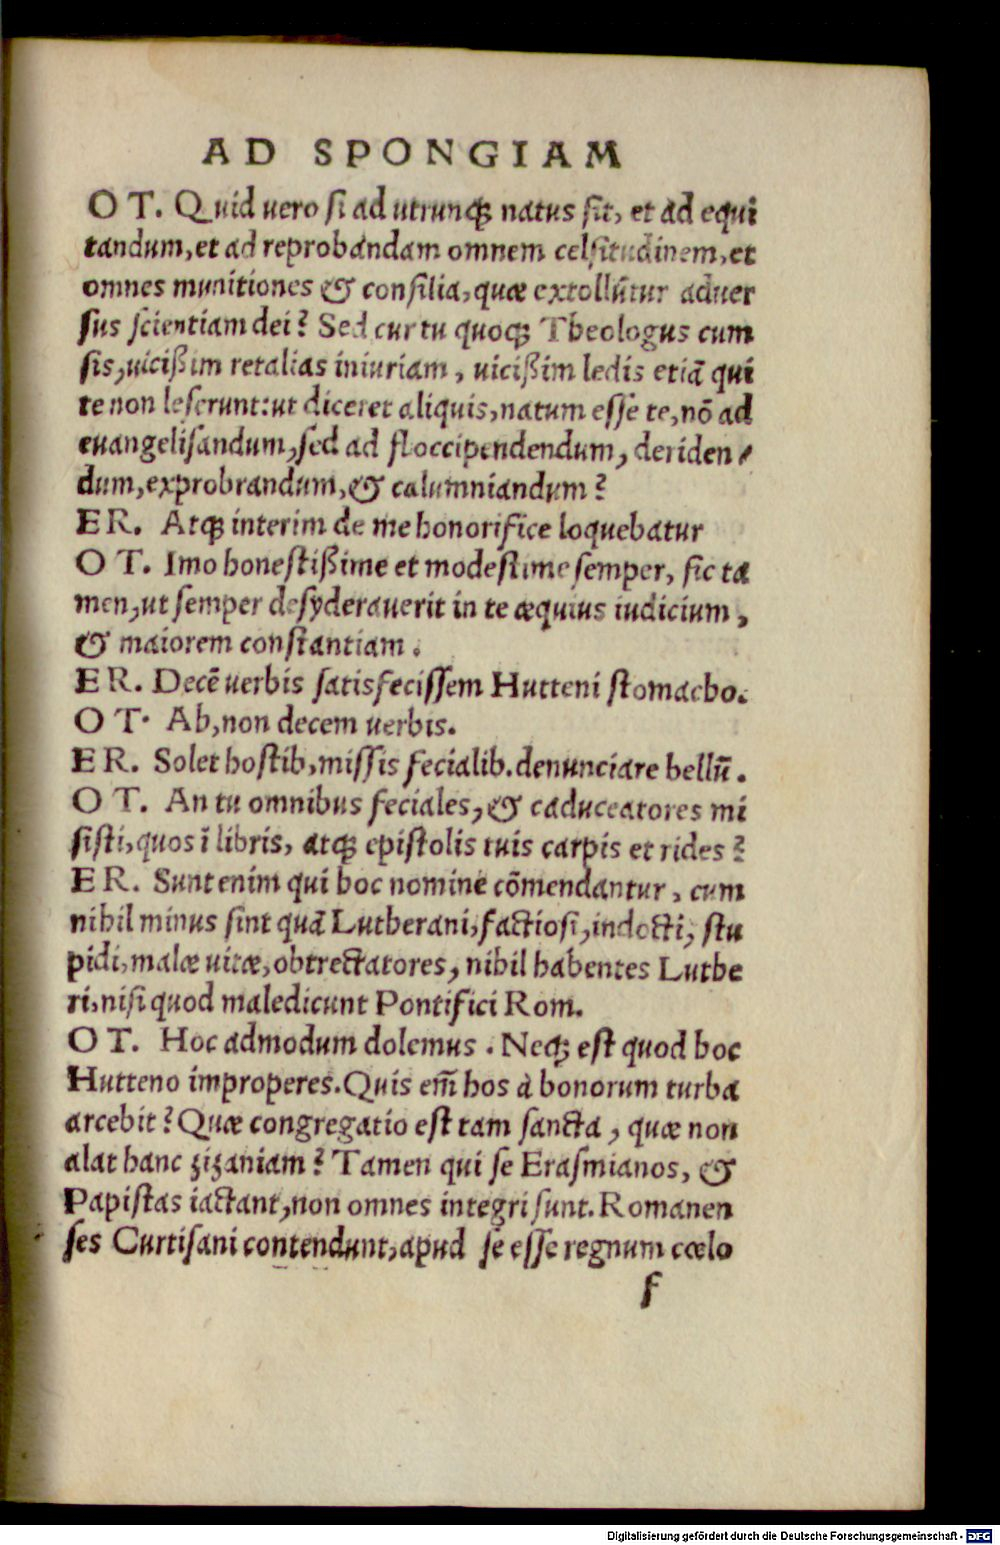 AD SPONGIAM
OT. Quid uero si ad utrunq; natus sit, et ad equi
tandum, et ad reprobandam omnem celsitudinem, et
omnes munitiones & consilia, quæ extollūtur aduer
sus scientiam dei? Sed cur tu quoq; Theologus cum
sis, uicißim retalias iniuriam, uicißim ledis etiã qui
te non leserunt: ut diceret aliquis, natum esse te, nõ ad
euangelisandum, sed ad floccipendendum, deriden⸗
dum, exprobrandum, & calumniandum?
ER. Atq; interim de me honorifice loquebatur
OT. Imo honestißime et modestime semper, sic ta
men, ut semper desyderauerit in te æquius iudicium,
& maiorem constantiam.
ER. Decẽ uerbis satisfecissem Hutteni stomacho.
OT. Ah, non decem uerbis.
ER. Solet hostib, missis fecialib. denunciare bellū.
OT. An tu omnibus feciales, & caduceatores mi
sisti, quos ĩ libris, atq; epistolis tuis carpis et rides?
ER. Sunt enim qui hoc nomine cõmendantur, cum
nihil minus sint quã Lutherani, factiosi, indocti, stu
pidi, malæ uitæ, obtrectatores, nihil habentes Luthe
ri, nisi quod maledicunt Pontifici Rom.
OT. Hoc admodum dolemus. Neq; est quod hoc
Hutteno improperes. Quis em̃ hos à bonorum turba
arcebit? Quæ congregatio est tam sancta, quæ non
alat hanc zizaniam? Tamen qui se Erasmianos, &
Papistas iactant, non omnes integri sunt. Romanen
ses Curtisani contendunt, apud se esse regnum cœlo
f
Digitalisierung gefördert durch die Deutsche Forschungsgemeinschaft - DFG